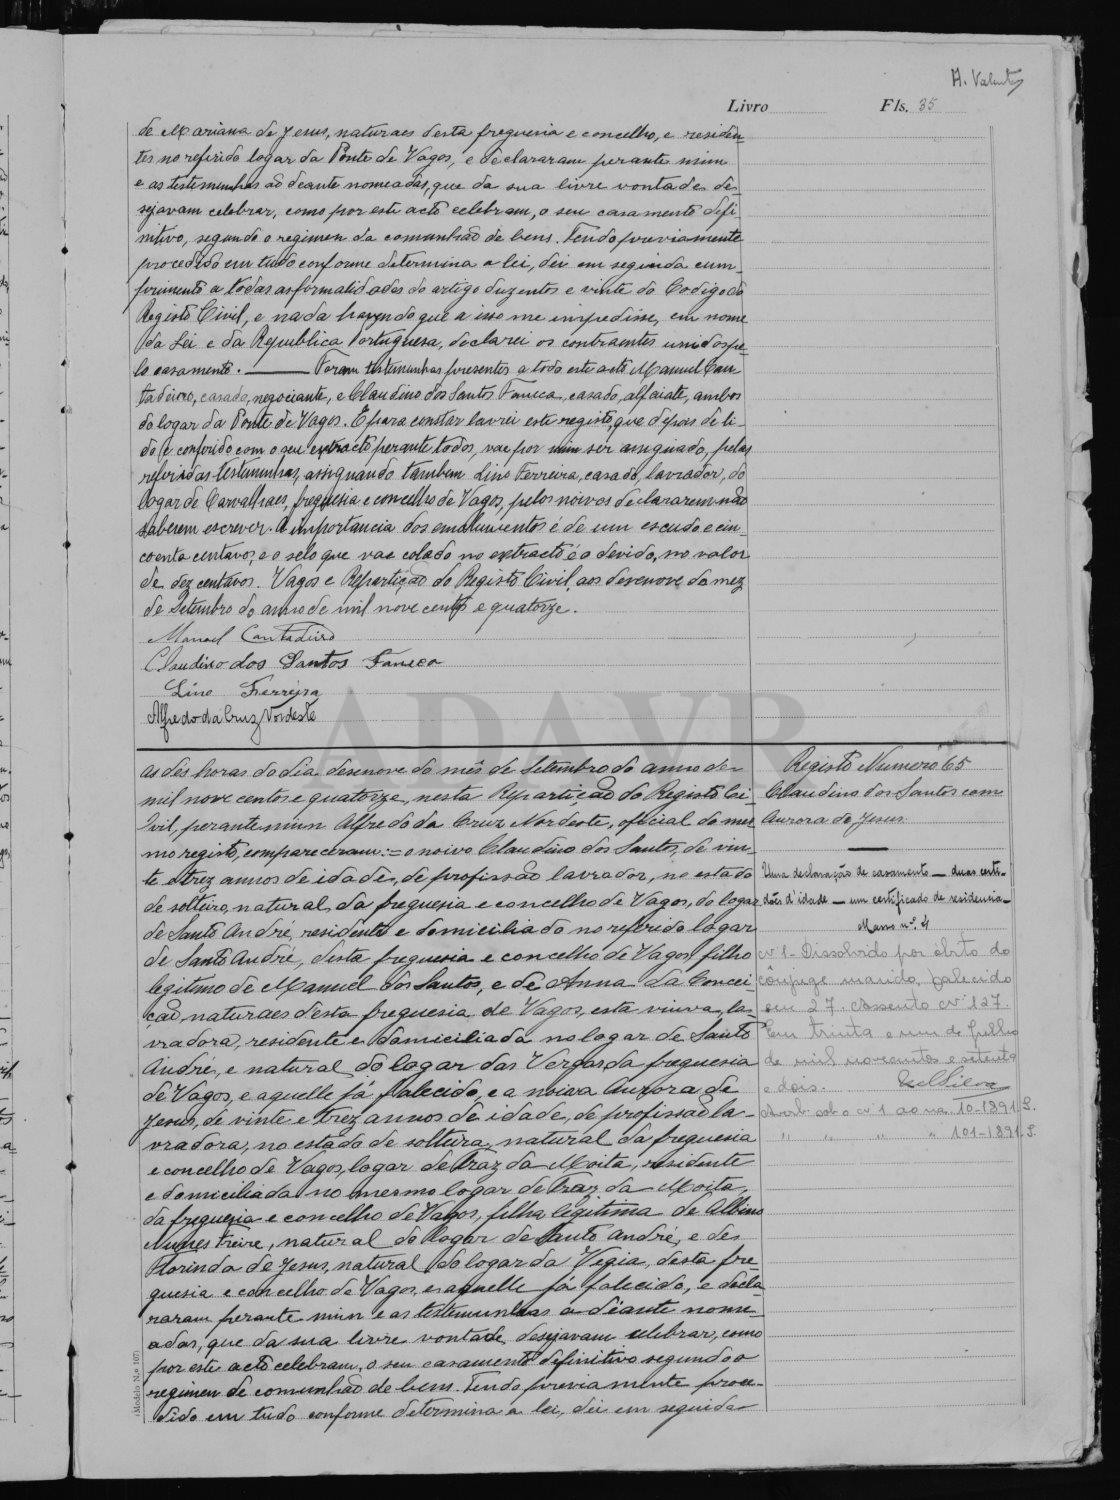 A. Valente
Livro Fls. 35
de Mariana de Jesus, naturaes desta freguesia e concelho, e residen-
tes no referido logar da Ponte de Vagos, e declararam perante mim
e as testemunhas ao deante nomeadas, que da sua livre vontade de-
sejavam celebrar, como por este acto celebram, o seu casamento defi-
nitivo, segundo o regimen da comunhão de bens. Tendo previamente
procedido em tudo conforme determina a lei, dei em seguida cum-
primento a todas as formalidades do artigo duzentos e vinte do Codigo do
Registo Civil, e nada havendo que a isso me impedisse, em nome
da Lei e da Republica Portuguesa, declarei os contraentes unidos pe-
lo casamento. — Foram testemunhas presentes a todo este acto Manuel Can-
tadeiro, casado, negociante, e Claudino dos Santos Faneca, casado, alfaiate, ambos
do logar da Ponte de Vagos. E para constar lavrei este registo, que depois de li-
do e conferido com o seu extracto perante todos, vae por mim ser assignado, pelas
referidas testemunhas, assignando tambem Lino Ferreira, casado, lavrador, do
logar de Carvalhaes, freguesia e concelho de Vagos, pelos noivos declararem não
saberem escrever. A importancia dos emolumentos é de um escudo e cin-
coenta centavos, e o selo que vae colado no extracto é o devido, no valor
de dez centavos. Vagos e Repartição do Registo Civil, aos desenove do mez
de Setembro do anno de mil nove centos e quatorze.
Manoel Cantadeiro
Claudino dos Santos Faneca
Lino Ferreira
Alfredo da Cruz Nordeste
ADAVR
As dés horas do dia desenove do mês de Setembro do anno de
mil nove centos e quatorze, nesta Repartição do Registo Ci-
vil, perante mim Alfredo da Cruz Nordeste, oficial do mes-
mo registo, compareceram:= o noivo Claudino dos Santos, de vin-
te e trez annos de idade, de profissão lavrador, no estado
de solteiro, natural da freguesia e concelho de Vagos, do logar
de Santo André, residente e domiciliado no referido logar
de Santo André, desta freguesia e concelho de Vagos, filho
legitimo de Manuel dos Santos, e de Anna da Concei-
ção, naturaes desta freguesia de Vagos, esta viuva, la-
vradora, residente e domiciliada no logar de Santo
André, e natural do logar das Vergas da freguesia
de Vagos, e aquelle já falecido, e a noiva Aurora de
Jesus, de vinte e trez annos de idade, de profissão la-
vradora, no estado de solteira, natural da freguesia
e concelho de Vagos, logar de Traz da Moita, residente
e domiciliada no mesmo logar de Traz da Moita,
da freguesia e concelho de Vagos, filha legitima de Albino
Nunes Freire, natural do logar de Santo André, e de
Florinda de Jesus, natural do logar da Vigia, desta fre-
guesia e concelho de Vagos, e aquelle já falecido, e decla-
raram perante mim e as testemunhas a déante nome-
adas, que da sua livre vontade, desejavam celebrar, como
por este acto celebram, o seu casamento definitivo segundo o
regimen de comunhão de bens. Tendo previamente proce-
dido em tudo conforme determina a lei, dei em seguida
(Modelo N.º 107)
Registo Numero 65
Claudino dos Santos com
Aurora de Jesus.
Uma declaração de casamento — duas certi-
dões d'idade — um certificado de residencia —
Masso n.º 4
Nº 1 - Dissolvido por óbito do
cônjuge marido, falecido
em 27. Assento nº 127.
Em trinta e um de Julho
de mil novecentos e setenta
e dois.
sob o nº 1 ao na 10-1391 S.
" " " " 101-1891 S.